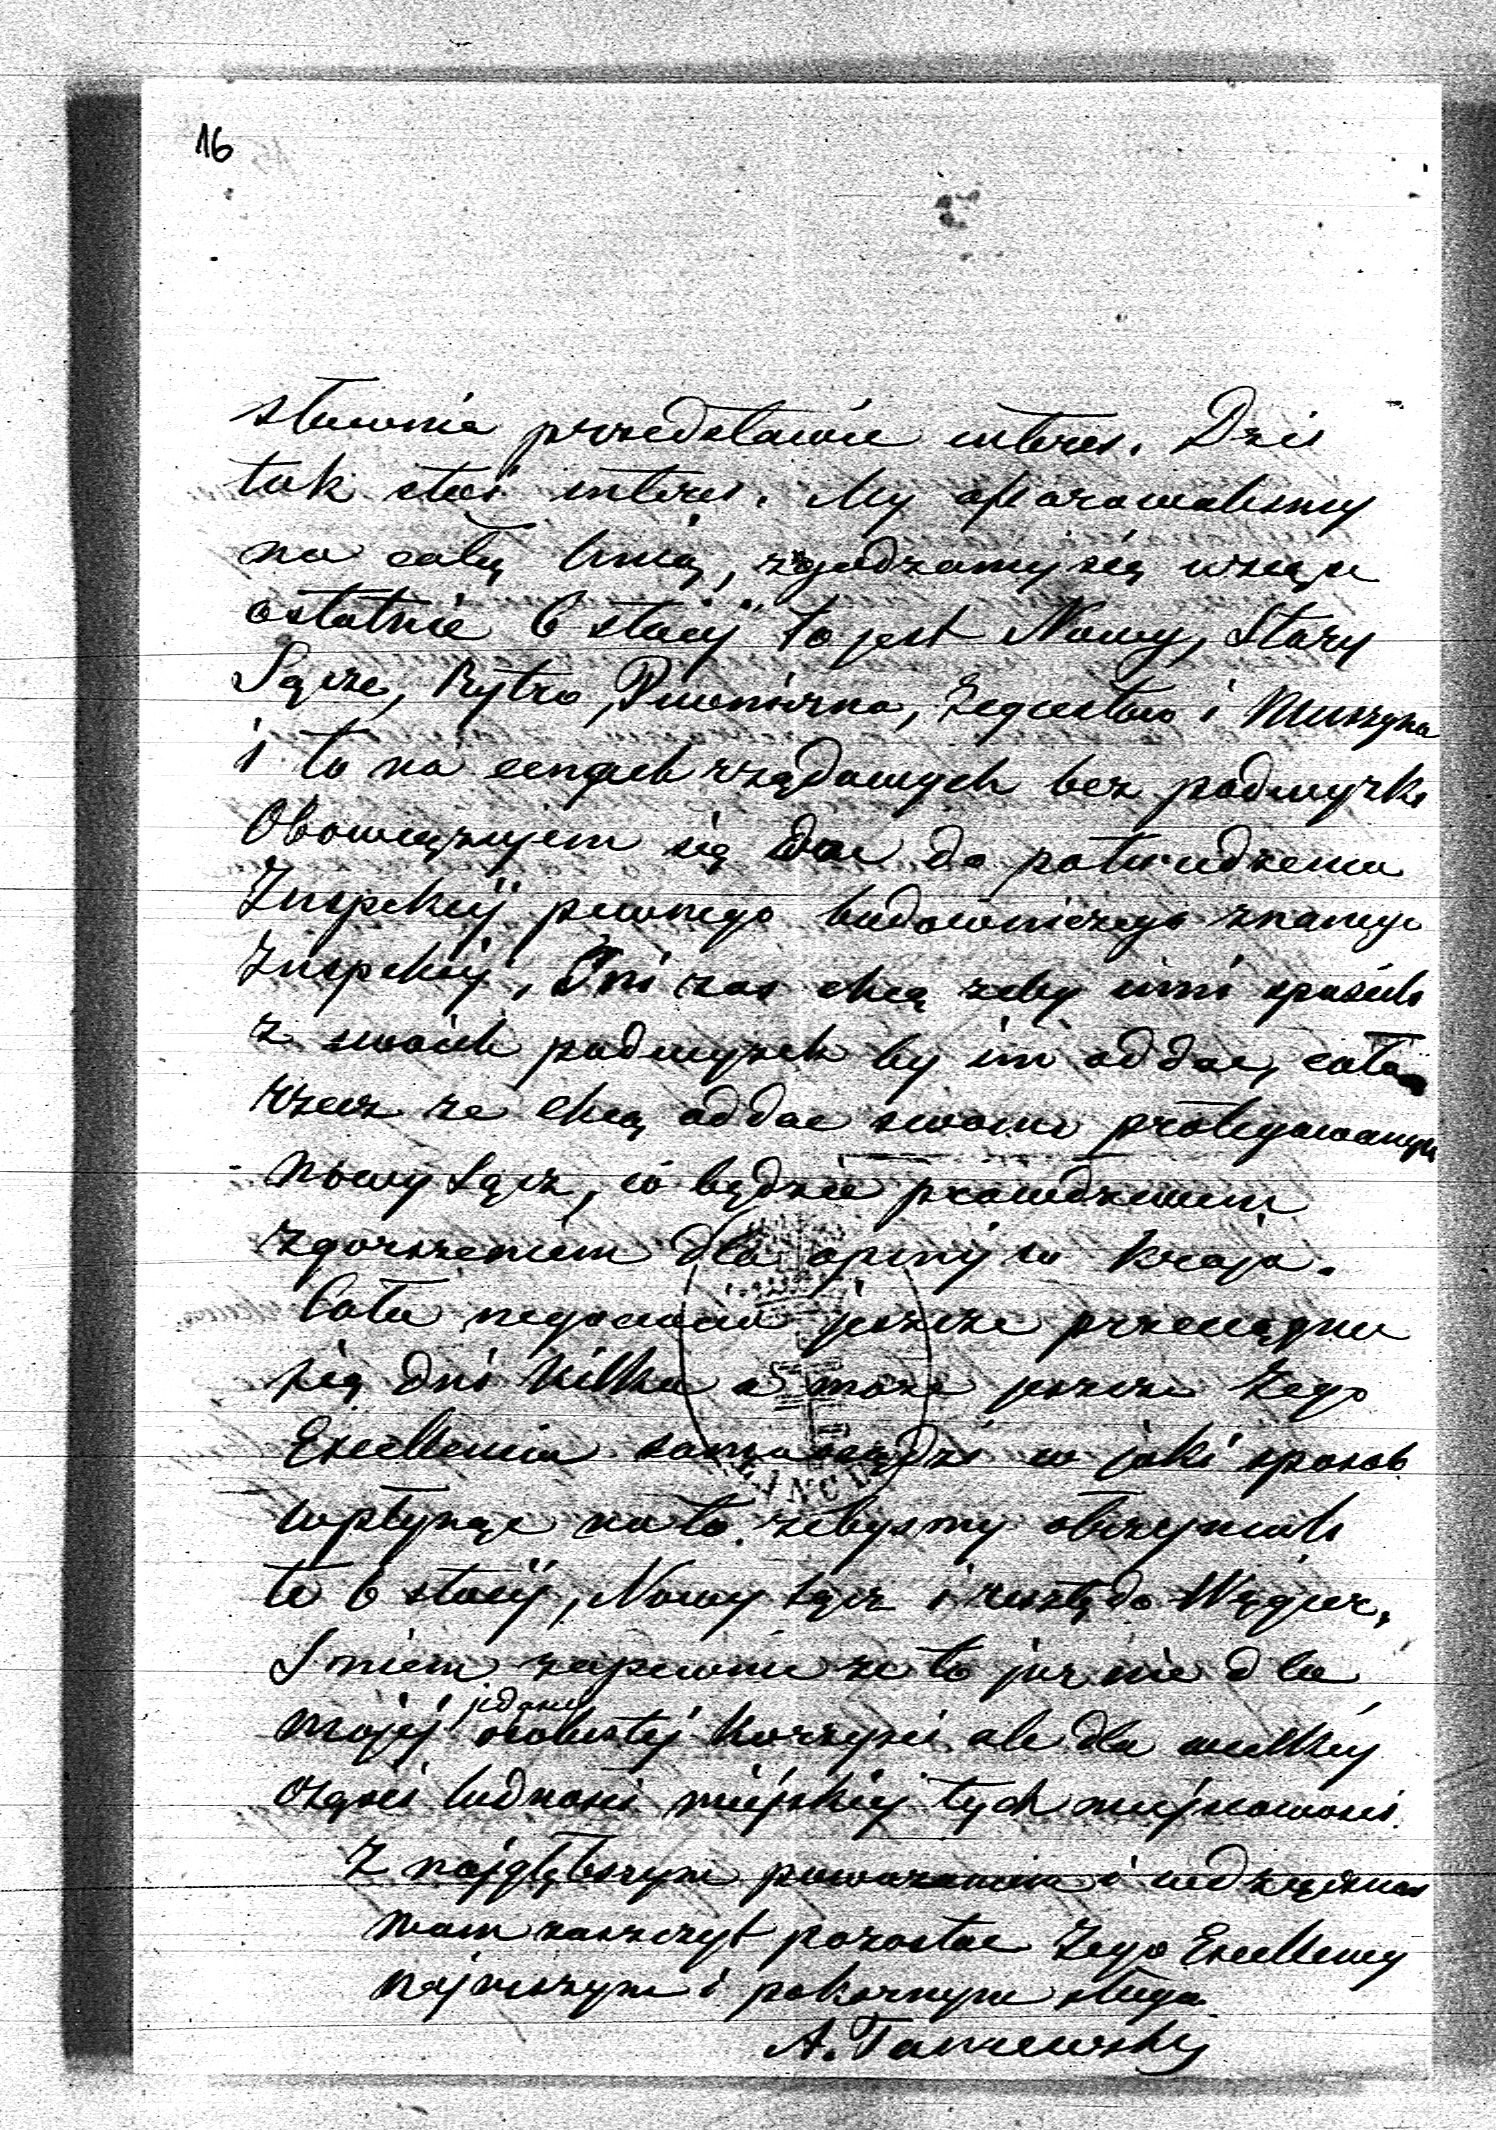 16
stawnie przedstawić interes. Dziś
tak stoi interes. My ofiarowaliśmy
na całą linią, zgadzamy się wziąść
ostatnie 6 stacij" to jest Nowy, Stary
Sącze, Rytro, Piwniczna, Żegiestów i Muszyna
i to na cenach rządowych bez podwyżki
Obowiązujem się dać do potwierdzenia
Inspekcij pewnego budowniczego znanego
Inspekcij, Oni zaś chcą żeby inni spuścili
z swoich podwyżek by im oddać, cała
rzecz że chcą oddać swoim protegowanym
Nowy Sącz, co będzie prawdziwem
zgorszeniem dla opinij w kraju.
Cała negocacia jeszcze przeciągnie
się dni kilka a może jeszcze Jego
Excellencia w jaki sposób
wpłynąć na to żebyśmy otrzymali
te 6 stacij, Nowy Sącz i resztę do Węgier,
Smiem zapewnić że to już nie dla
mojej jedynie osobistej korzyści ale dla wielkiej
części ludności miejskiej tych miejscowości.
Z najgłębszym poważaniem i
mam zaszczyt pozostać Jego Excellencij
najniższym i pokornym sługą
A.